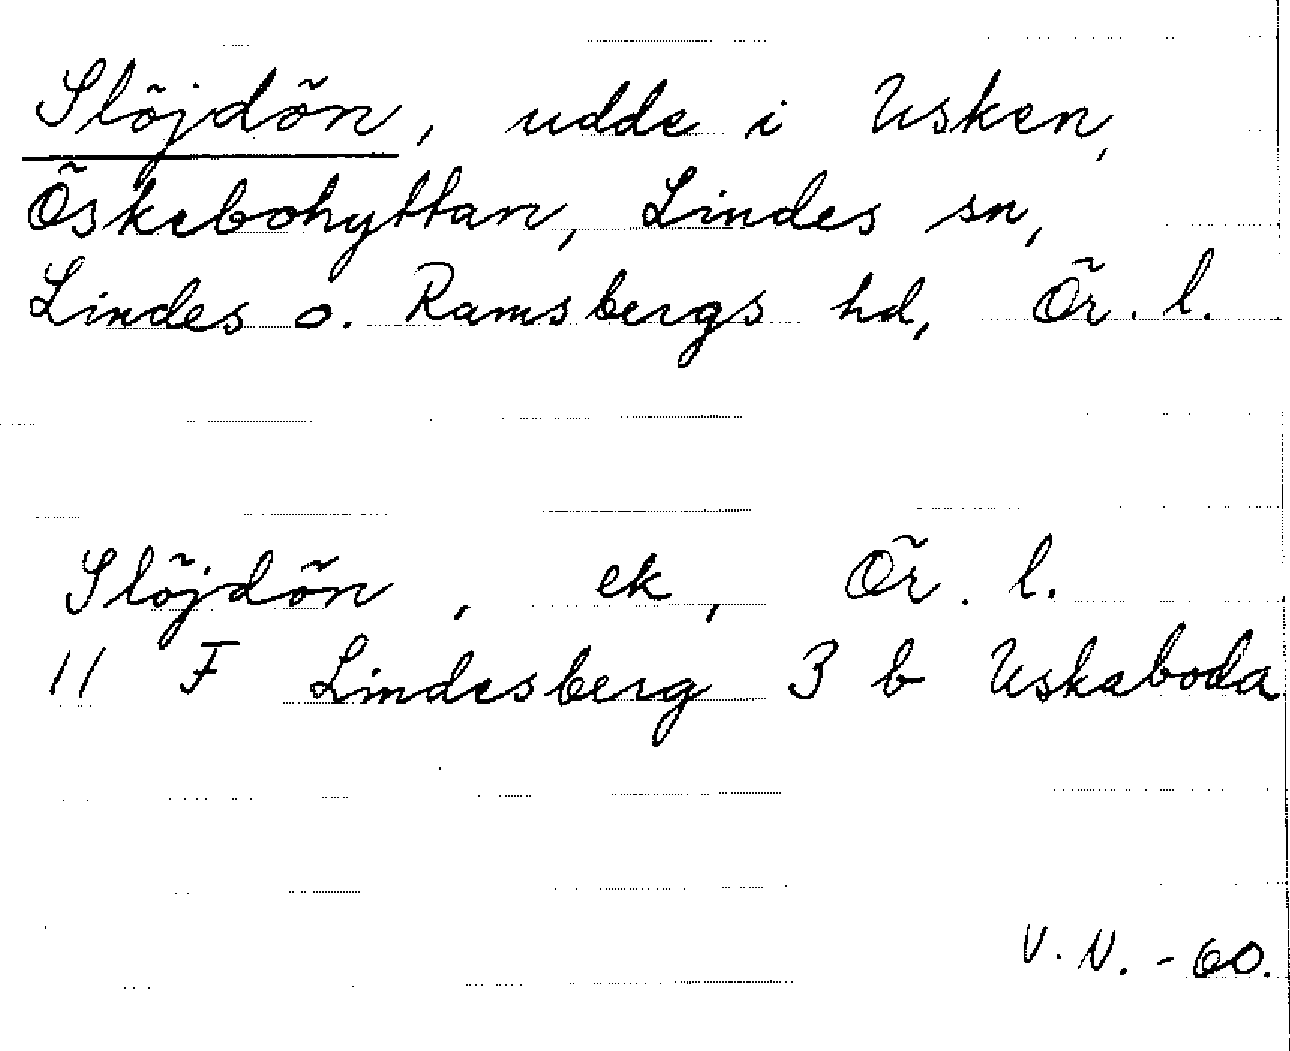 Slöjdön, udde i Usken,
Öskebohyttan, Lindes sn,
Lindes o. Ramsbergs hd, Ör. l.
Slöjdön, ek, Ör. l.
11 F Lindesberg 3 b Uskaboda
V. N. - 60.